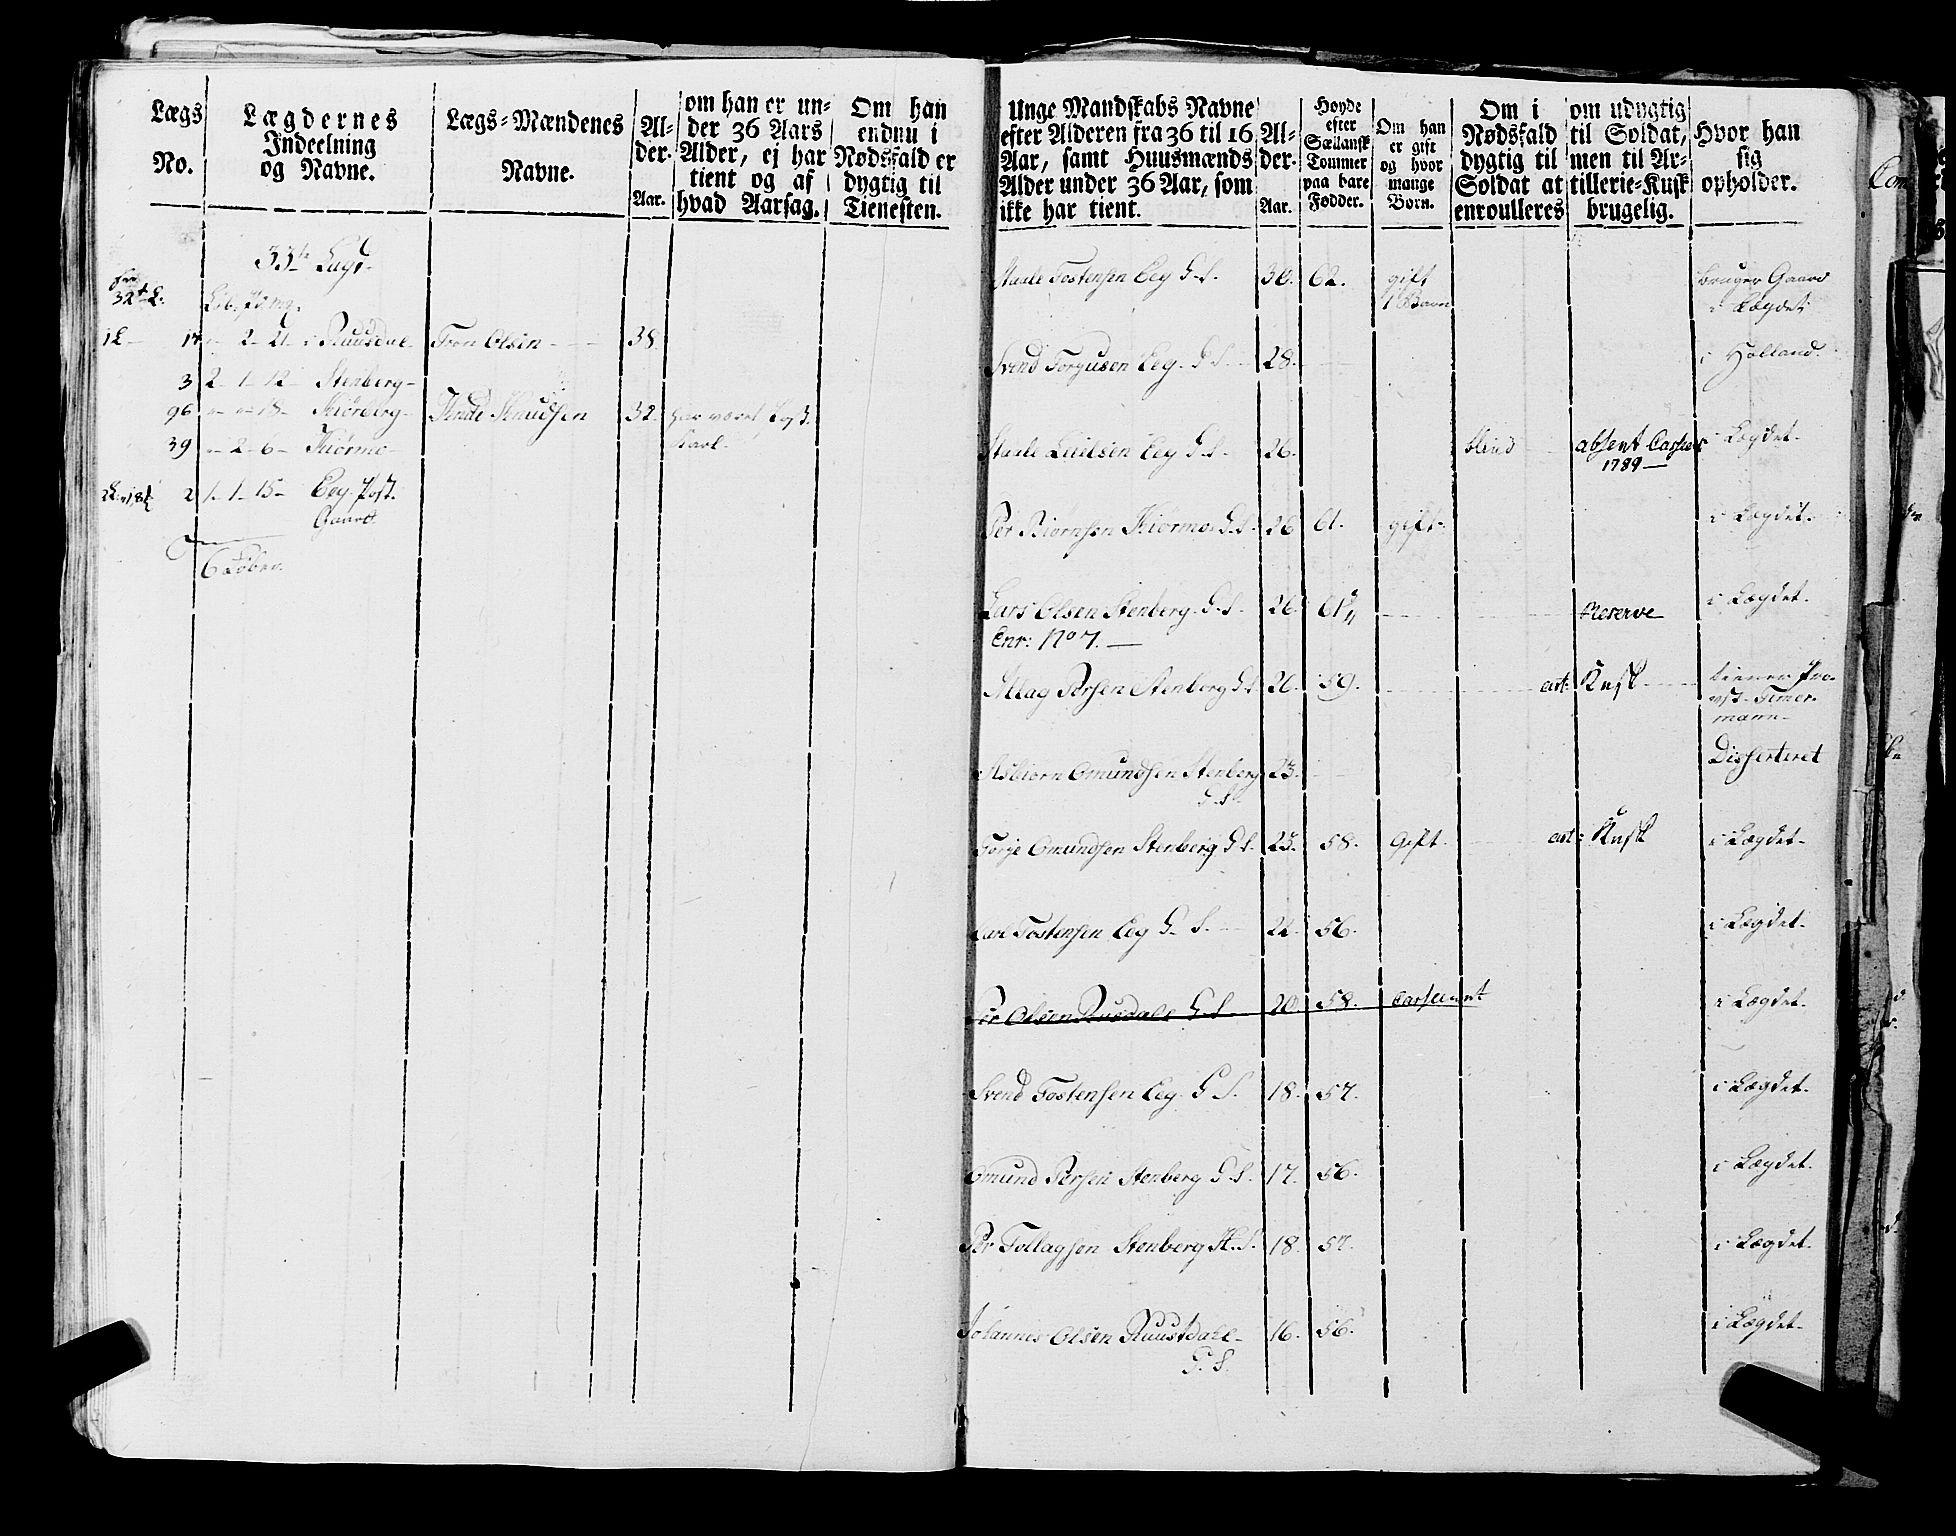 Lægs No.
Lægdernes Indeelning og Navne.
Lægs-Mændenes Navne.
Alder. Aar.
om han er under 36 Aars Alder, ej har tient og af hvad Aarsag.
Om han endnu i Nødsfald er dygtig til Tienesten.
33te Lægd
32te L:
Løb. Pd. mg.
1 L 17 - 2 - 21 - Ruusdal Tron Olsen 38
3 2 - 1 - 12 - Stenberg
96 " - " - 18 - Kiørberg Knudsen 32. har været Post
39 " - 2 - 6 - Kiørmo Karl.
2 1 - 1 - 15 - Eeg Post
Gaard
6 Løber.
Unge Mandskabs Navne efter Alderen fra 36 til 16 Aar, samt Huusmænds Alder under 36 Aar, som ikke har tient.
Alder. Aar.
Høyde efter Sællansk Tommer paa bare Fødder.
Om han er gift og hvor mange Børn.
Om i Nødsfald dygtig til Soldat at enroulleres
om udygtig til Soldat, men til Artillerie-Kusk brugelig.
Hvor han sig opholder.
Staale Tostensen Eeg G. S. 30. 62. gift bruger Gaard
1 Barn i Lægdet
Svend Torgusen Eeg G S 28. i Holland.
Staale Eeg G S. 26. blind absent i Lægdet.
1789
Per Biørnsen Kiørmo G. S. 26 61. gift i Lægdet.
Lars Olsen Stenberg. G. S. 26. 61 Reserve i Lægdet.
Enr: No 7.
Persen Stenberg G S 26. 59. art: Kusk tiener Provst
mann
Asbiørn Omundsen Stenberg 23. Disserteret
G. S.
Torje Omundsen Stenberg G S. 23. 58. Gift. art: Kusk i Lægdet.
Tostensen Eeg G. S. 22. 56. i Lægdet.
Per Olsen Ruusdale G. S 20. 58. Casseret i Lægdet.
Svend Tostensen Eeg. G S. 18. 57. i Lægdet.
Omund Persen Stenberg G S. 17. 56. i Lægdet.
Per Tollagsen Stenberg H. S. 18. 57. i Lægdet.
Johannes Olsen Ruustdall 16. 56. i Lægdet.
G. S.